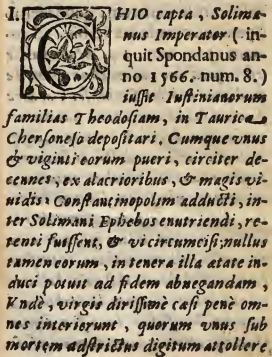 I. CHIO capta, Solima-
nus Imperator (in-
quit Spondanus an-
no 1566. num. 8.)
iussit Iustinianorum
familias Theodosiam, in Taurica
Chersoneso depositari. Cumque vnus
& viginti eorum pueri, circiter de-
cennes, ex alacrioribus, & magis vi-
uidis: Constantinopolim adducti, in-
ter Solimani Ephebos enutriendi, re-
tenti fuissent, & vi circumcisi; nullus
tamen eorum, in tenera illa ætate in-
duci potuit ad fidem abnegandam,
Vndè, virgis dirissimè cæsi penè om-
nes interierunt, quorum vnus sub
mortem adstrictus digitum attollere